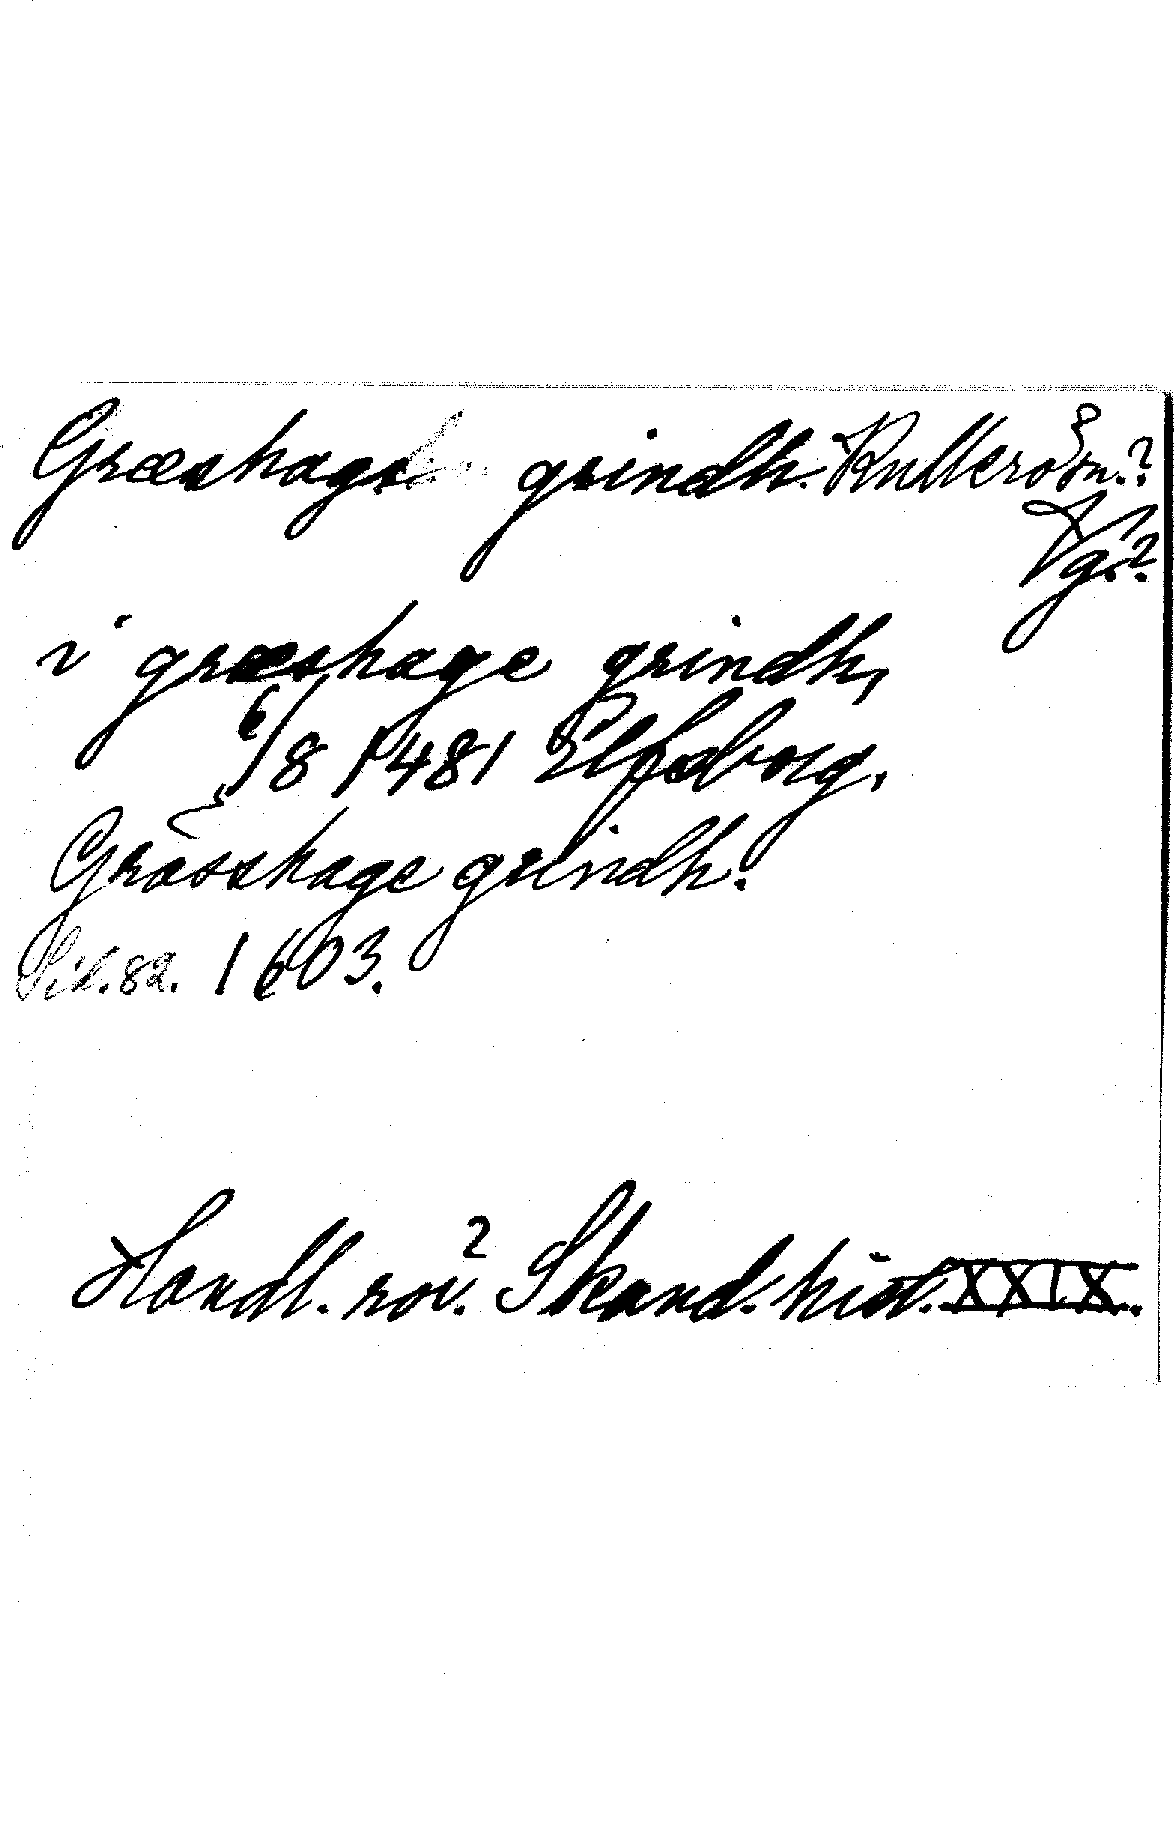 Græshage grindh. Kullerö Sn.?
Vg.?
i græshage grindh,
6/8 1481 Elfsborg.
Grässhage grindh.
Sid. 82. 1603.
Handl. rör. Skand. hist. XXIX.